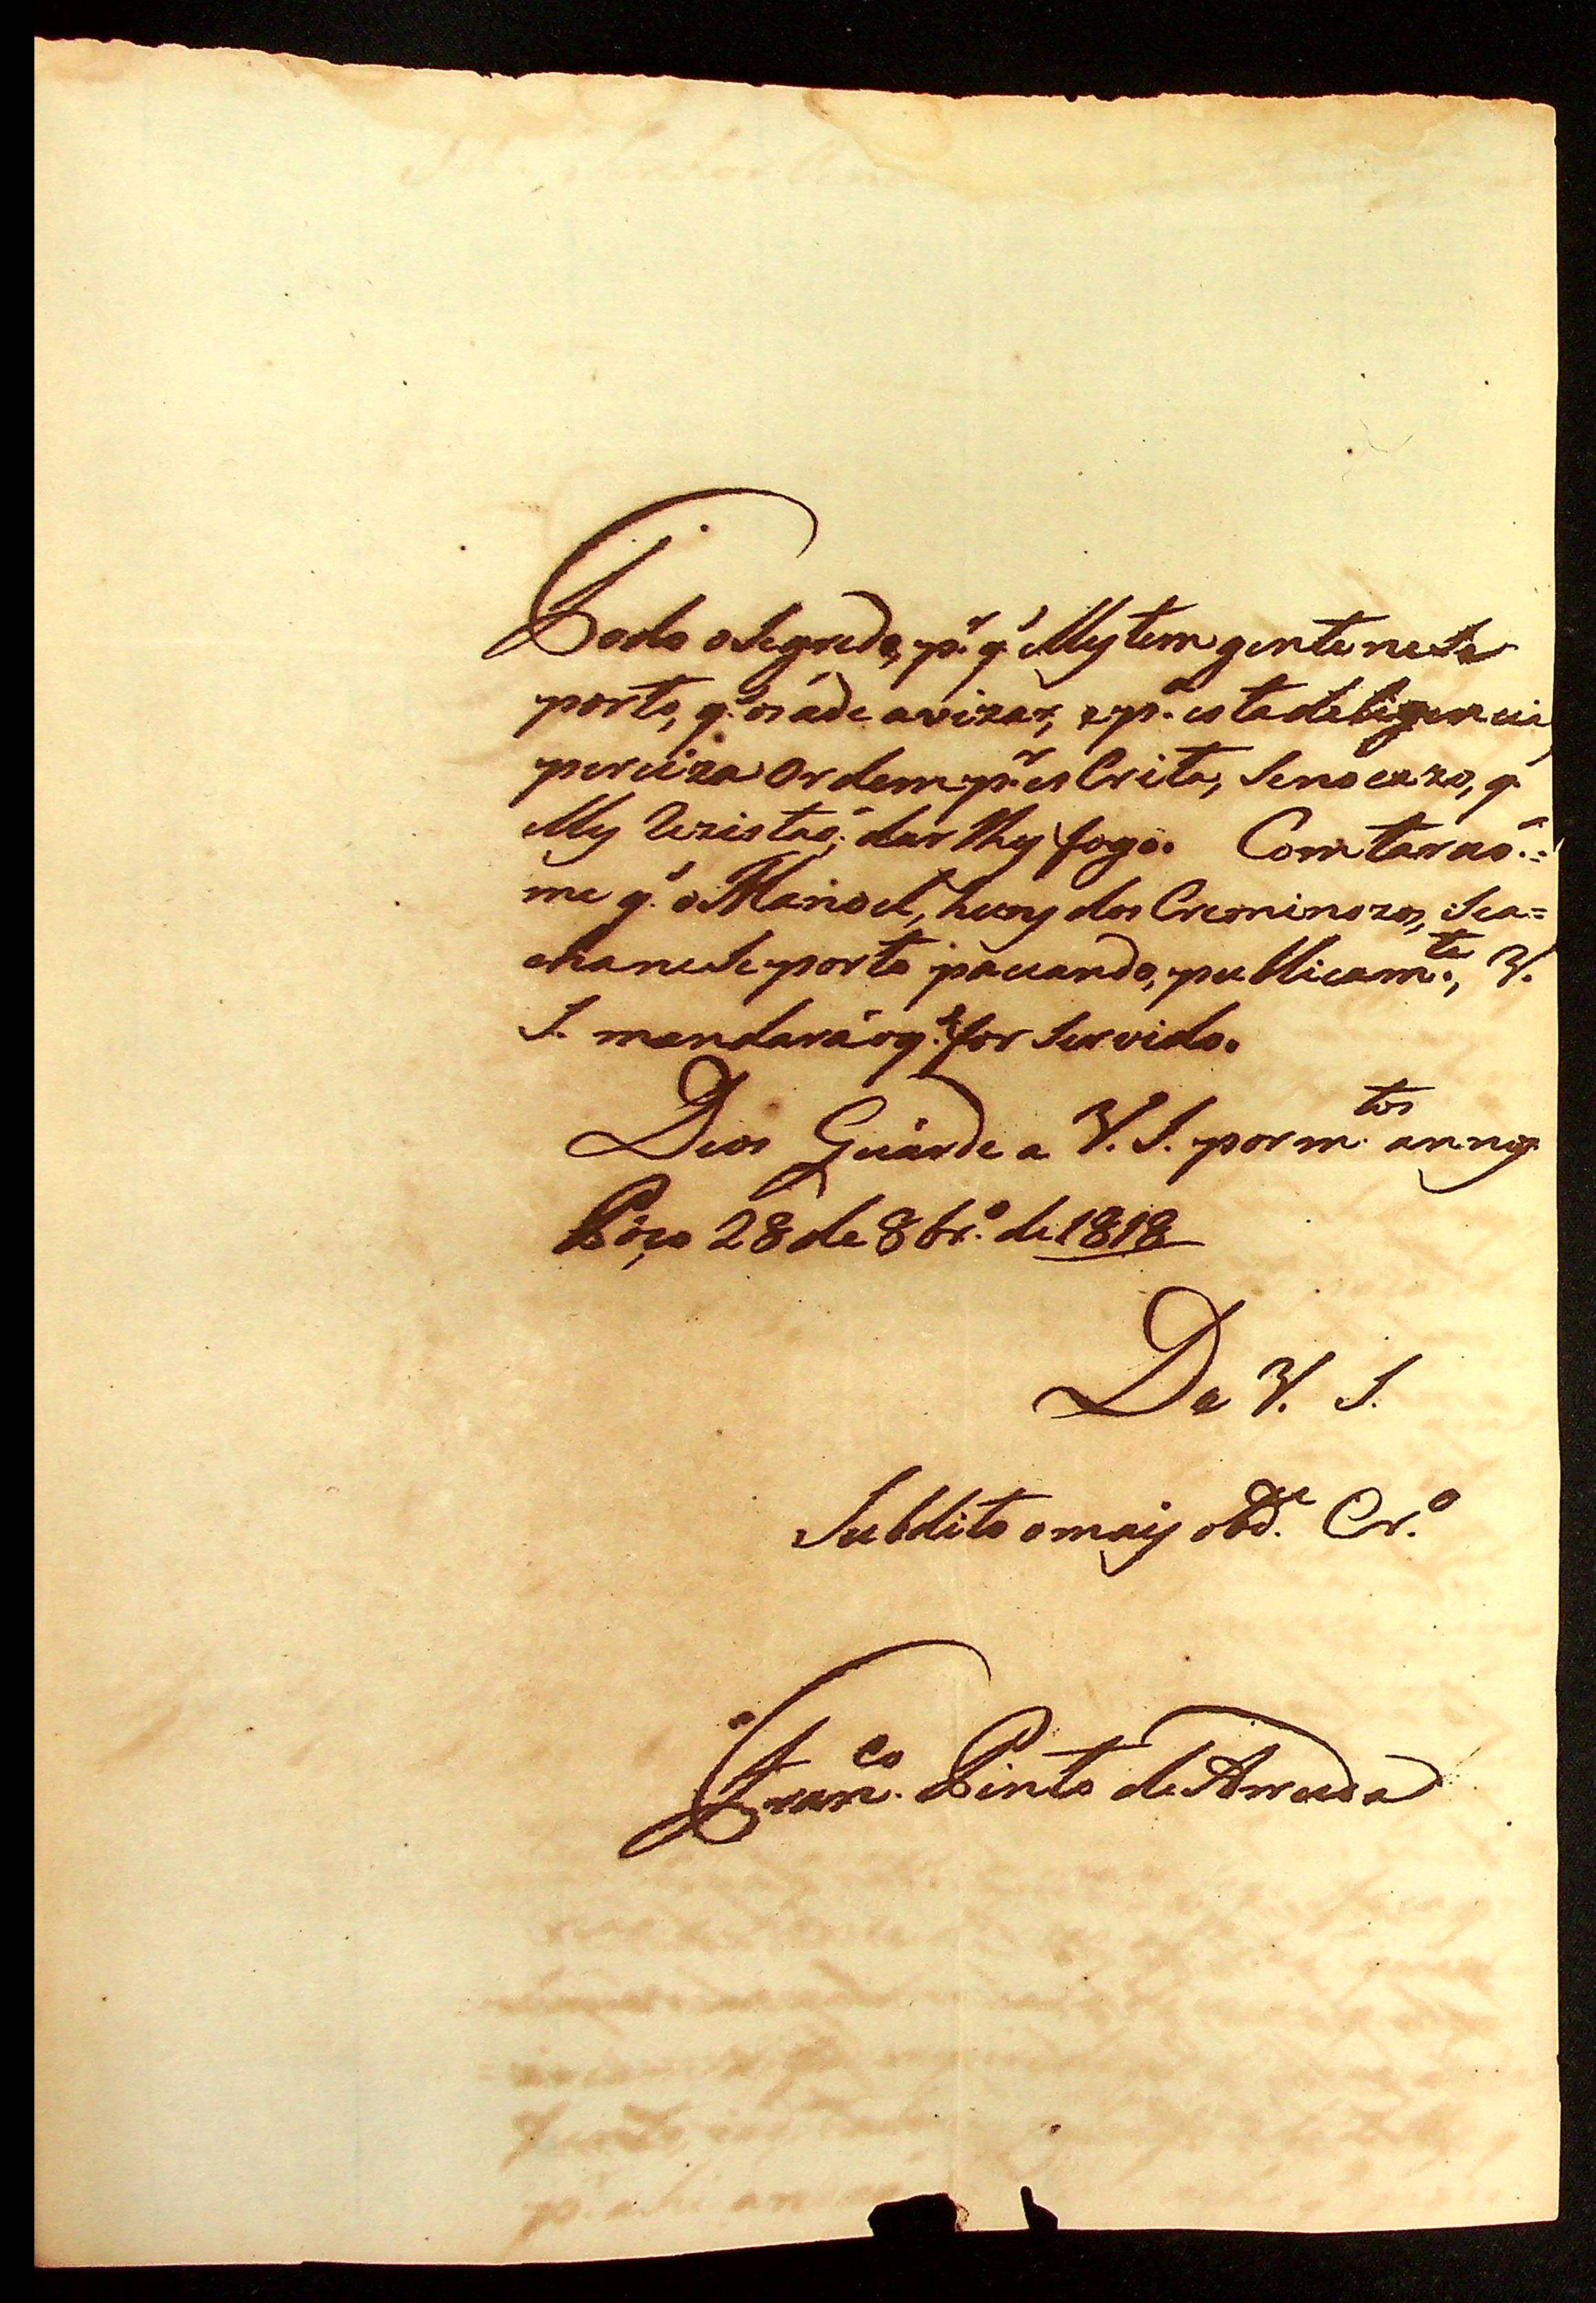 Todo o Segredo, p.r q.' elles tem gente neste
porto, q.' os áde avizar, e p.a esta deligencia
perciza Ordem p.r esCrita, Se no cazo, q.'
elles rezistaõ, dar lhes fogo. Comtaraõ=
me q.' o Manoel, hum dos Creminozos, Se a=
cha neste porto paceando, publicam.te, V.
S. mandará o q.' for Servido.
Deos Guarde a V. S. por m.tos annos
Poço 28 de 8br.o de 1818
De V. S.
Subdito o mais obd.e Cr.o
Fran.co Pinto de Arruda